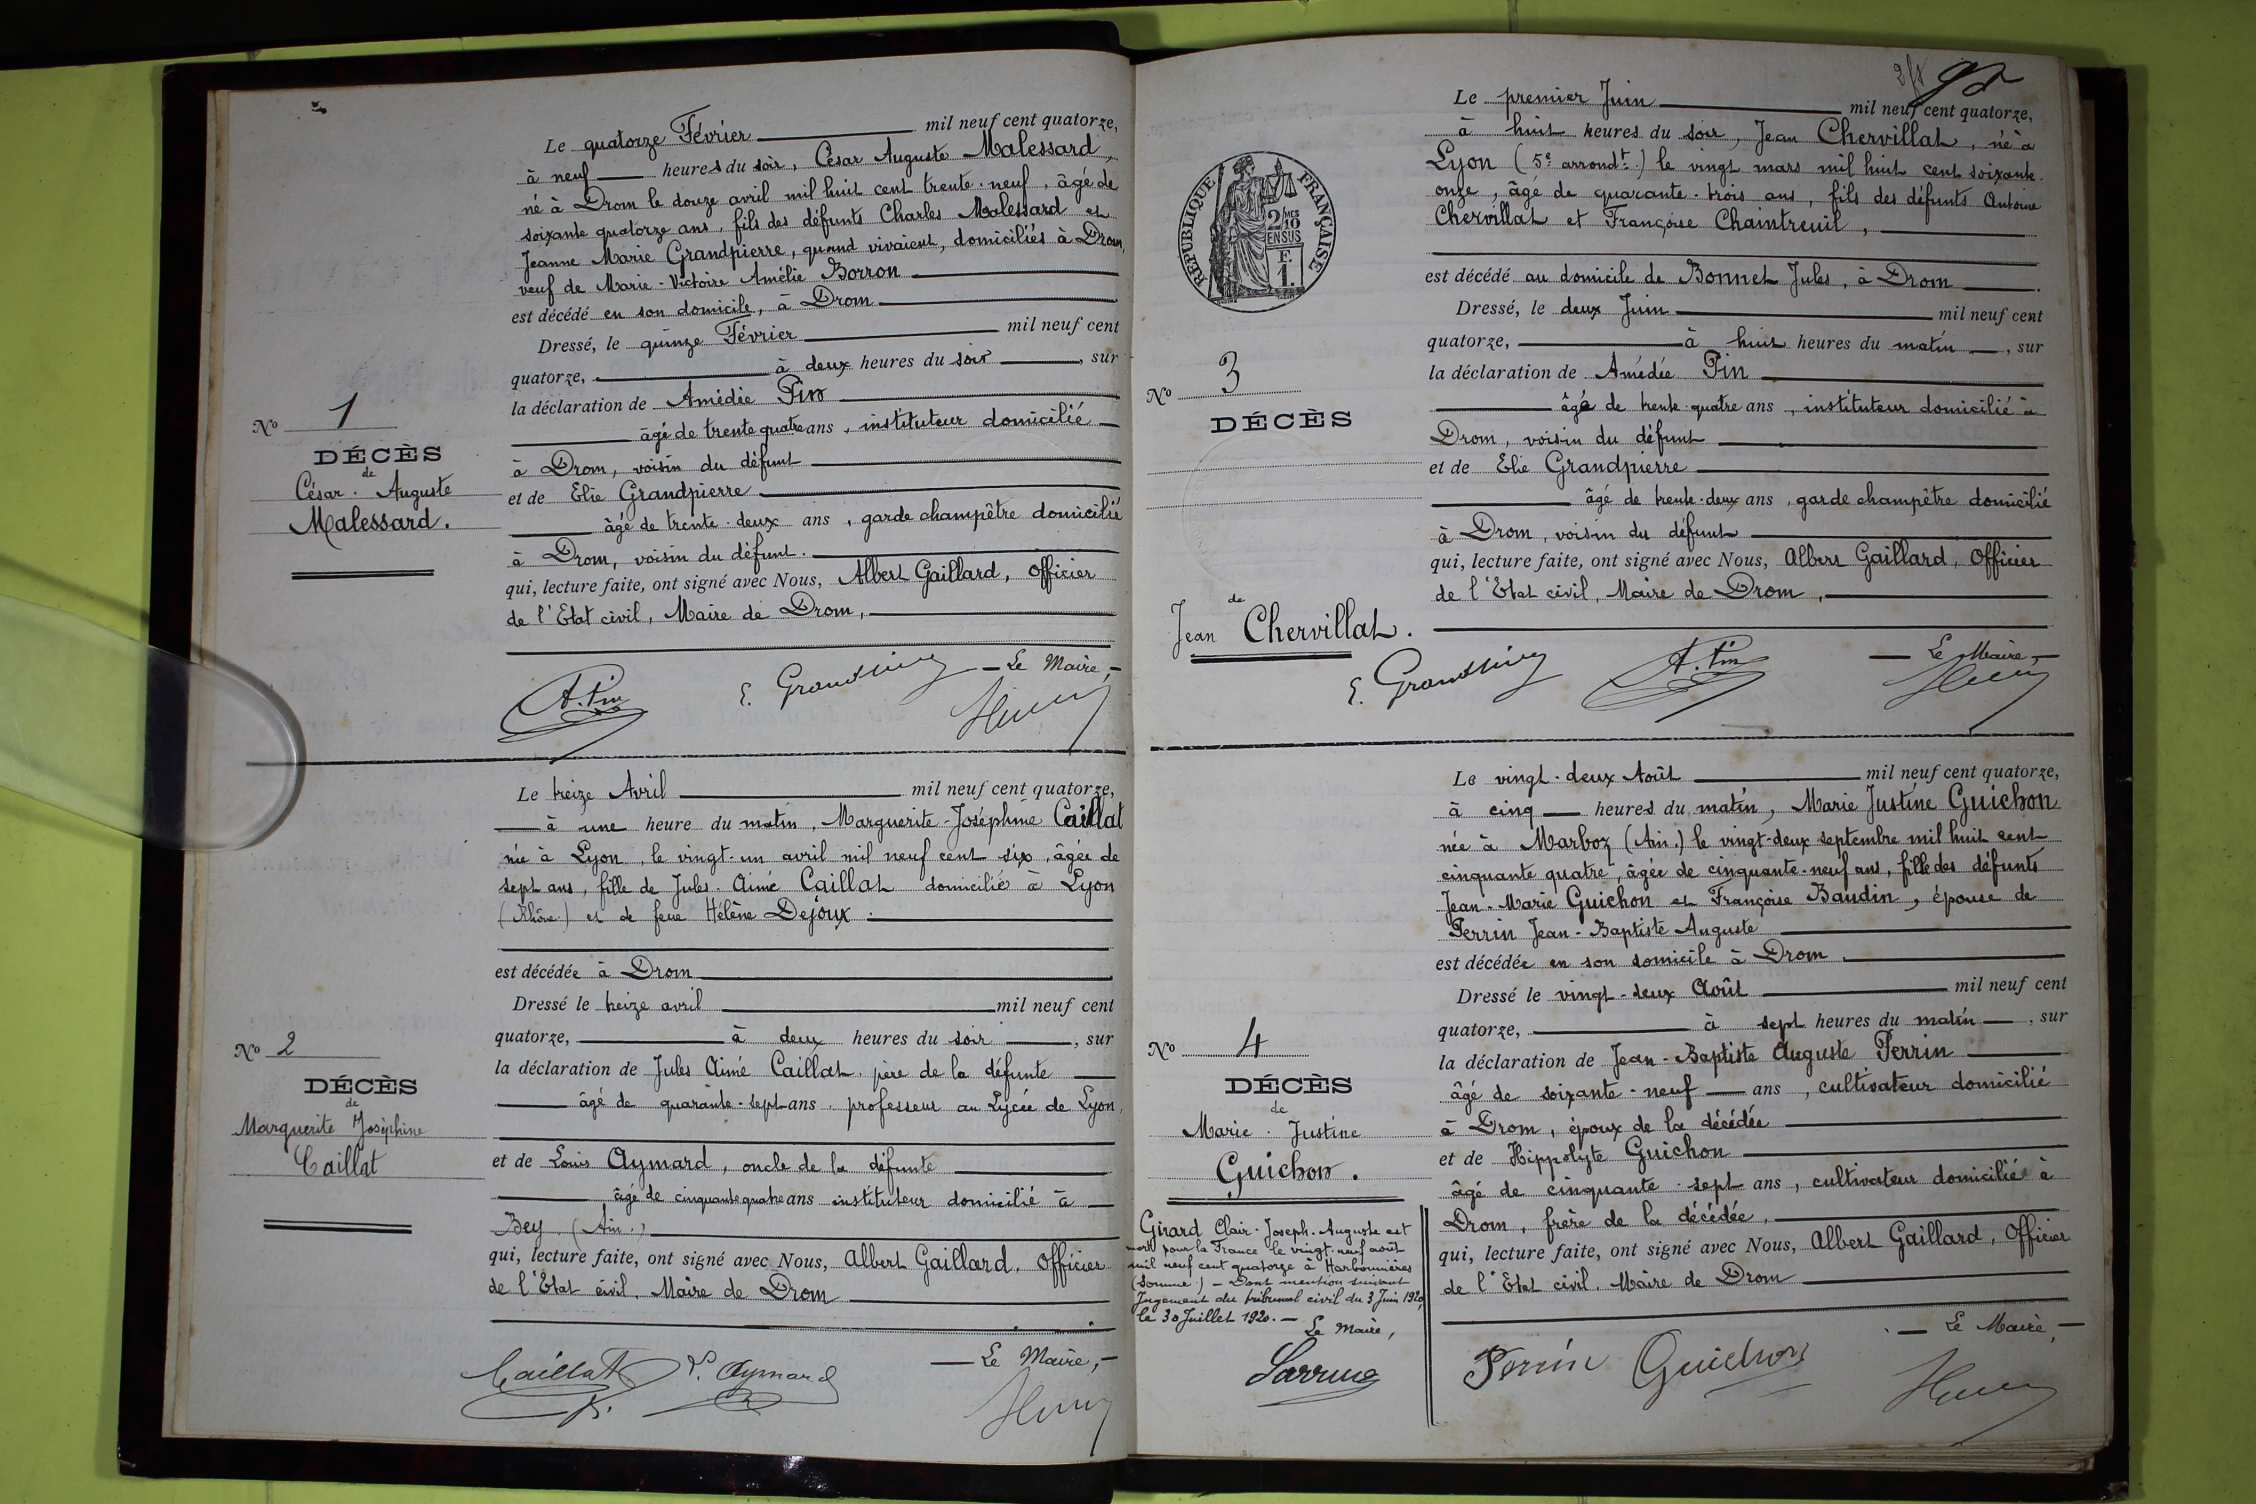 Le quatorze Février mil neuf cent quatorze,
à neuf heures du soir, César Auguste Malessard,
né à Drom le douze avril mil huit cent trente-neuf, âgé de
soixante quatorze ans, fils des défunts Charles Malessard et
Jeanne Marie Grandpierre, quand vivaient, domiciliés à Drom,
veuf de Marie-Victoire Amélie Borron
est décédé en son domicile, à Drom
Dressé, le quinze Février mil neuf cent
quatorze, à deux heures du soir, sur
la déclaration de Amédée Pin
âgé de trente quatre ans, instituteur domicilié
à Drom, voisin du défunt
et de Elie Grandpierre
âgé de trente-deux ans, garde champêtre domicilié
à Drom, voisin du défunt.
qui, lecture faite, ont signé avec Nous, Albert Gaillard, Officier
de l'Etat civil, Maire de Drom,
No 1
DÉCÈS
de
César-Auguste
Malessard.
A. Pin E. Grandpierre — Le Maire, —
Le treize Avril mil neuf cent quatorze,
à une heure du matin, Marguerite-Joséphine Caillat
née à Lyon, le vingt-un avril mil neuf cent six, âgée de
sept ans, fille de Jules-Aimé Caillat domicilié à Lyon
(Rhône) et de feue Hélène Dejoux.
est décédée à Drom
Dressé le treize avril mil neuf cent
quatorze, à deux heures du soir, sur
la déclaration de Jules Aimé Caillat, père de la défunte
âgé de quarante-sept ans, professeur au Lycée de Lyon,
et de Louis Aymard, oncle de la défunte
âgé de cinquante quatre ans instituteur domicilié à
Bey (Ain.)
qui, lecture faite, ont signé avec Nous, Albert Gaillard, Officier
de l'Etat civil, Maire de Drom
No 2
DÉCÈS
de
Marguerite Joséphine
Caillat
Caillat L. Aymard — Le Maire, —
Le premier Juin mil neuf cent quatorze,
à huit heures du soir, Jean Chervillat, né à
Lyon (5e arrondt.) le vingt mars mil huit cent soixante-
onze, âgé de quarante-trois ans, fils des défunts Antoine
Chervillat et Françoise Chaintreuil,
est décédé au domicile de Bonnet Jules, à Drom.
Dressé, le deux Juin mil neuf cent
quatorze, à huit heures du matin, sur
la déclaration de Amédée Pin
âgé de trente-quatre ans, instituteur domicilié à
Drom, voisin du défunt
et de Elie Grandpierre
âgé de trente-deux ans, garde champêtre domicilié
à Drom, voisin du défunt
qui, lecture faite, ont signé avec Nous, Albert Gaillard, Officier
de l'Etat civil, Maire de Drom,
RÉPUBLIQUE FRANÇAISE
2/10
EN SUS
F.
1.
No 3
DÉCÈS
de
Jean Chervillat.
E. Grandpierre A. Pin — Le Maire, —
Le vingt-deux Août mil neuf cent quatorze,
à cinq heures du matin, Marie Justine Guichon
née à Marboz (Ain.) le vingt-deux septembre mil huit cent
cinquante quatre, âgée de cinquante-neuf ans, fille des défunts
Jean-Marie Guichon et Françoise Baudin, épouse de
Perrin Jean-Baptiste Auguste
est décédée en son domicile à Drom.
Dressé le vingt-deux Août mil neuf cent
quatorze, à sept heures du matin, sur
la déclaration de Jean-Baptiste Auguste Perrin
âgé de soixante-neuf ans, cultivateur domicilié
à Drom, époux de la décédée
et de Hippolyte Guichon
âgé de cinquante-sept ans, cultivateur domicilié à
Drom, frère de la décédée,
qui, lecture faite, ont signé avec Nous, Albert Gaillard, Officier
de l'Etat civil, Maire de Drom
No 4
DÉCÈS
de
Marie-Justine
Guichon.
Girard Clair-Joseph-Auguste est
mort pour la France le vingt-neuf août
mil neuf cent quatorze à Harbonnières
(Somme.) — Dont mention suivant
Jugement du tribunal civil du 3 Juin 1920,
le 30 Juillet 1920. —
Le Maire,
Perrin Guichon — Le Maire, —